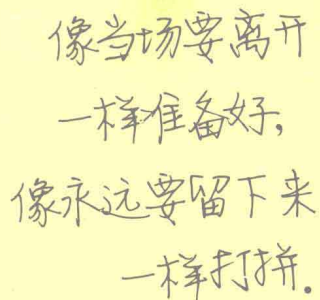 像当场要离开
一样准备好,
像永远要留下来
一样打拼.